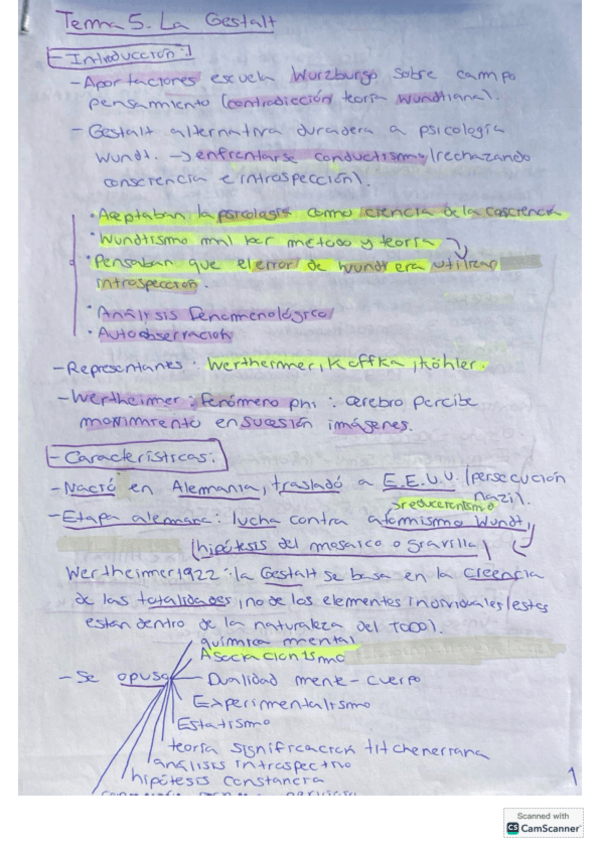 Tema 5. La Gestalt
- Introducción:
- Aportaciones escuela Wurzburgo sobre campo
pensamiento (contradicción teoría wundtiana).
- Gestalt alternativa duradera a psicología
Wundt. → enfrentarse conductismo (rechazando
consciencia e introspección).
· Aceptaban la psicología como ciencia de la consciencia
· Wundtismo mal por método y teoría
· Pensaban que el error de Wundt era utilizar
introspección.
· Análisis fenomenológico
· Autoobservación
- Representantes: Wertheimer, Koffka, Köhler.
- Wertheimer: fenómeno phi: cerebro percibe
movimiento en sucesión imágenes.
- Características:
- Nació en Alemania, traslado a E.E.U.U. (persecución
nazi).
reduccionismo
- Etapa alemana: lucha contra atomismo Wundt,
(hipótesis del mosaico o gravilla)
Wertheimer 1922: la Gestalt se basa en la creencia
de las totalidades, no de los elementos individuales (estos
están dentro de la naturaleza del TODO).
química mental
Asociacionismo
- Se opuso - Dualidad mente-cuerpo
Experimentalismo
Estatismo
teoría significación titcheneriana
análisis introspectivo
hipótesis constancia
1
Scanned with
CS CamScanner